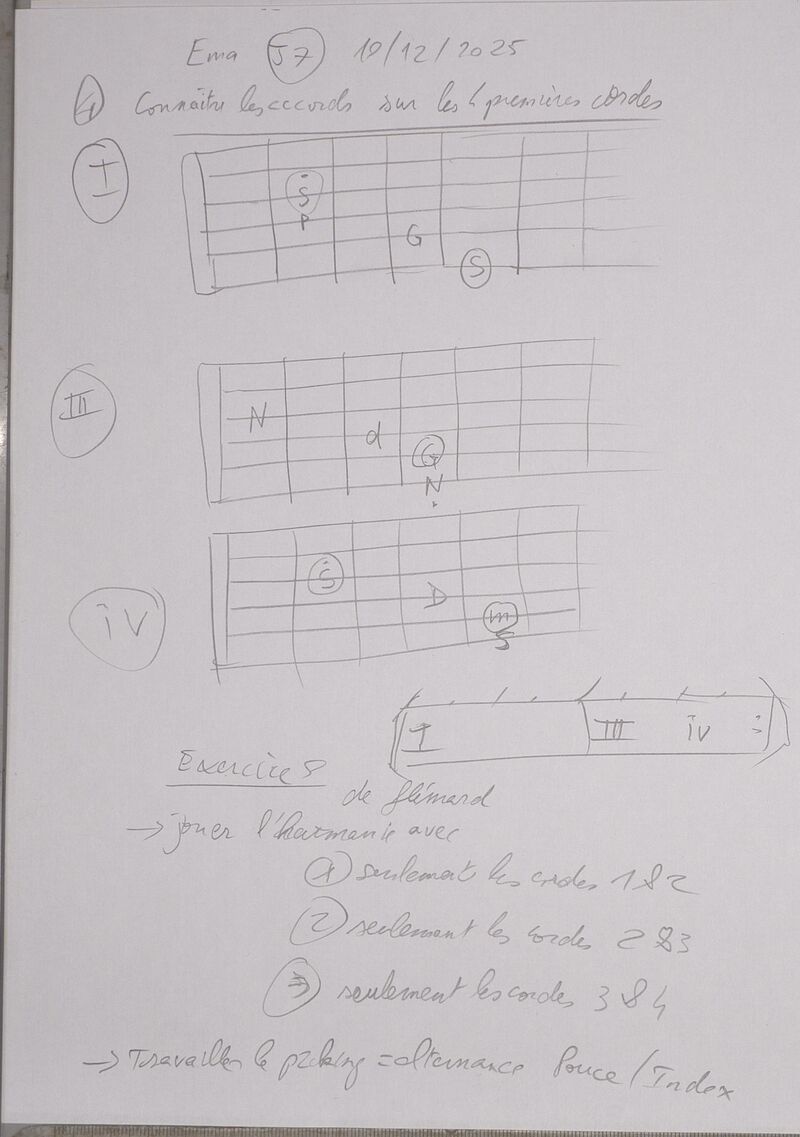 Ema J7 10/12/2025
Connaître les accords sur les 4 premières cordes
I
S
P
G
S
III
N
d
G
N
iv
S
D
m
S
I III iv
Exercices
de flémard
→ jouer l'harmonie avec
1 seulement les cordes 1 & 2
2 seulement les cordes 2 & 3
3 seulement les cordes 3 & 4
→ Travailler le picking = alternance Pouce / Index